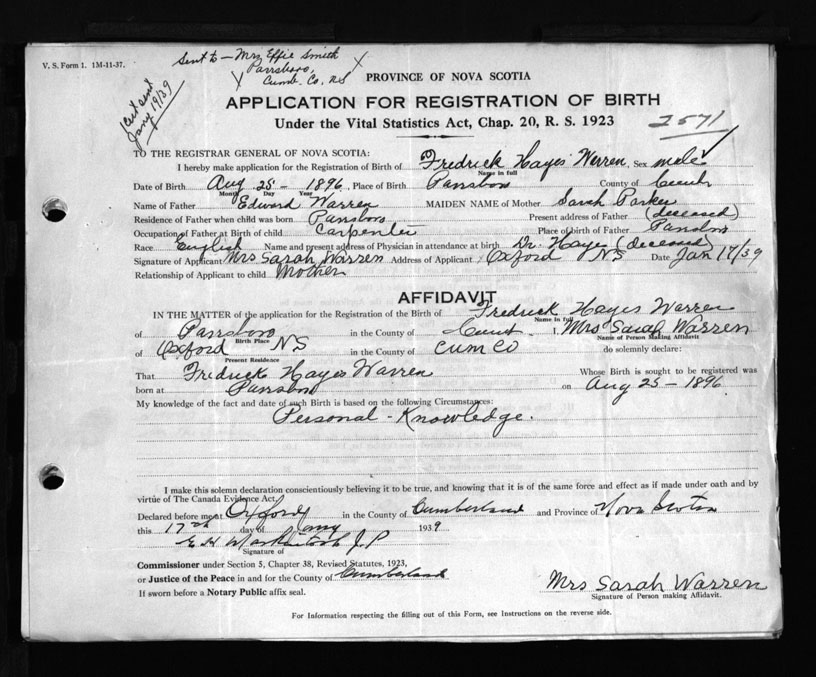 V. S. Form 1. 1M-11-37.
Sent to - Mrs Effie Smith
Parrsboro,
Cumb. Co, NS
sent
Jany 19/39
PROVINCE OF NOVA SCOTIA
APPLICATION FOR REGISTRATION OF BIRTH
Under the Vital Statistics Act, Chap. 20, R. S. 1923
2571
TO THE REGISTRAR GENERAL OF NOVA SCOTIA:
I hereby make application for the Registration of Birth of Fredrick Hayes Warren. Sex male
Name in full
Date of Birth Aug 25 - 1896 Place of Birth Parrsboro County of Cumb
Month Day Year
Name of Father Edward Warren MAIDEN NAME of Mother Sarah Parker
Residence of Father when child was born Parrsboro Present address of Father (deceased)
Occupation of Father at Birth of child Carpenter Place of birth of Father Parrsboro
Race English Name and present address of Physician in attendance at birth Dr. Hayes (deceased)
Signature of Applicant Mrs Sarah Warren Address of Applicant Oxford NS Date Jan 17/39
Relationship of Applicant to child Mother
AFFIDAVIT
IN THE MATTER of the application for the Registration of the Birth of Fredrick Hayes Warren
Name in full
of Parrsboro in the County of Cumb I, Mrs Sarah Warren
Birth Place Name of Person Making Affidavit
of Oxford NS in the County of Cum Co do solemnly declare:
Present Residence
That Fredrick Hayes Warren Whose Birth is sought to be registered was
born at Parrsboro on Aug 25 - 1896
My knowledge of the fact and date of such Birth is based on the following Circumstances:
Personal - Knowledge.
I make this solemn declaration conscientiously believing it to be true, and knowing that it is of the same force and effect as if made under oath and by
virtue of The Canada Evidence Act,
Declared before me at Oxford in the County of Cumberland and Province of Nova Scotia
this 17th day of Jany 1939
E H J.P
Signature of
Commissioner under Section 5, Chapter 38, Revised Statutes, 1923,
or Justice of the Peace in and for the County of Cumberland
If sworn before a Notary Public affix seal.
Mrs Sarah Warren
Signature of Person making Affidavit.
For Information respecting the filling out of this Form, see Instructions on the reverse side.